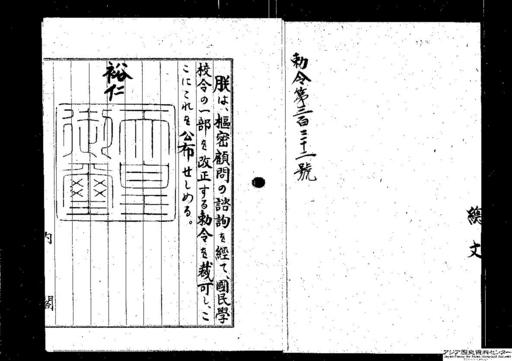 勅令第三百三十一號
總文
朕は、樞密顧問の諮詢を經て、國民學
校令の一部を改正する勅令を裁可し、こ
こにこれを公布せしめる。
裕仁
天皇
御璽
内閣
アジア歴史資料センター